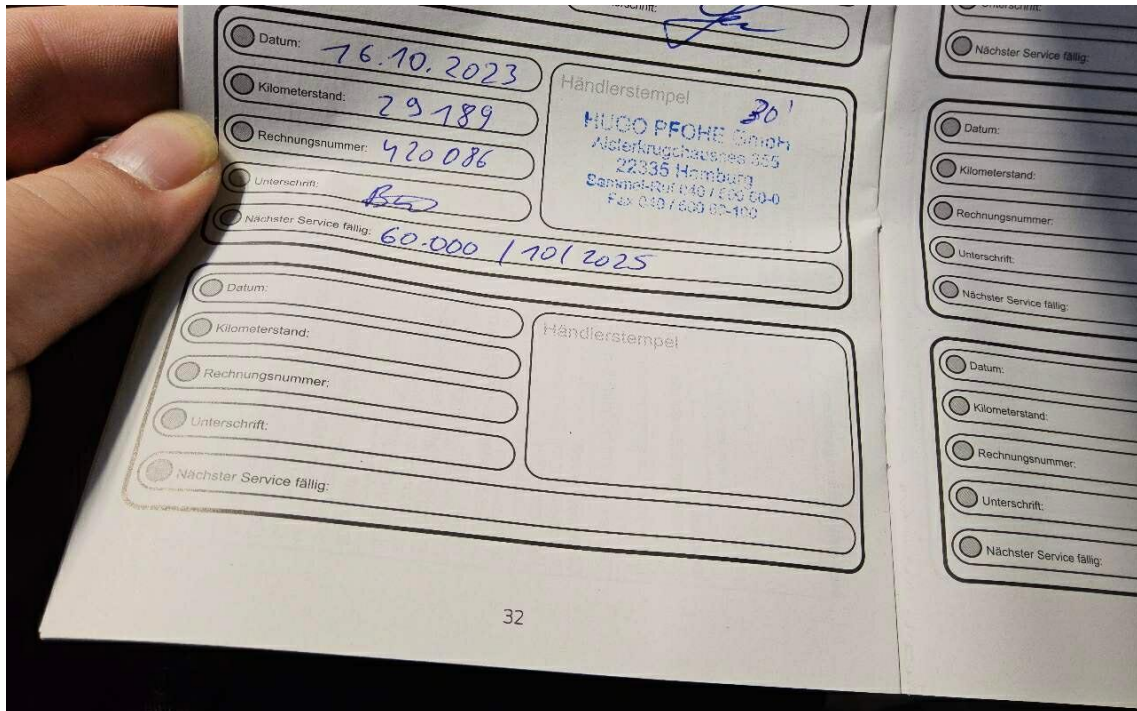 Unterschrift:
Datum: 16.10.2023
Kilometerstand: 29189
Rechnungsnummer: 420086
Unterschrift:
Nächster Service fällig: 60.000 / 10 / 2025
Händlerstempel
30'
HUGO PFOHE GmbH
22335 Hamburg
Datum:
Kilometerstand:
Rechnungsnummer:
Unterschrift:
Nächster Service fällig:
Händlerstempel
32
Unterschrift:
Nächster Service fällig:
Datum:
Kilometerstand:
Rechnungsnummer:
Unterschrift:
Nächster Service fällig:
Datum:
Kilometerstand:
Rechnungsnummer:
Unterschrift:
Nächster Service fällig: